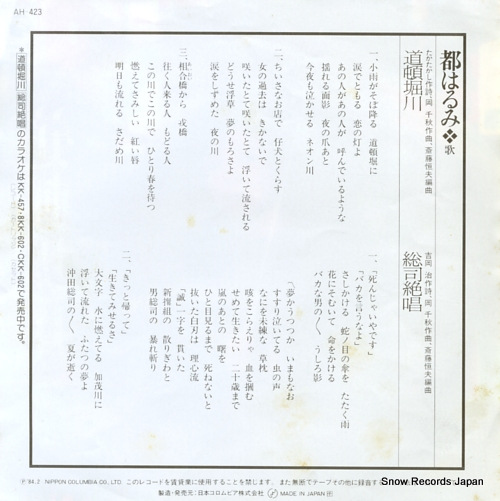 AH-423
都はるみ❖歌
道頓堀川
たかたかし作詩、岡 千秋作曲、斎藤恒夫編曲
一、小雨がそば降る 道頓堀に
涙でともる 恋の灯よ
あの人があの人が 呼んでいるような
揺れる面影 夜の爪あと
今夜も泣かせる ネオン川
二、ちいさなお店で 仔犬とくらす
女の過去は きかないで
咲いたとて咲いたとて 浮いて流される
どうせ浮草 夢のもろさよ
涙をしずめた 夜の川
三、相合橋から 戎橋
往く人来る人 もどる人
この川でこの川で ひとり春を待つ
燃えてさみしい 紅い唇
明日も流れる さだめ川
総司絶唱
吉岡 治作詩、岡 千秋作曲、斎藤恒夫編曲
一、「死んじゃいやです」
「バカを言うなよ」
さしかける 蛇ノ目の傘を たたく雨
花にそむいて 命をかける
バカな男の〱 うしろ影
「夢かうつつか いまもなお
すすり泣いてる 虫の声
なにを未練な 草枕
咳をこらえりゃ 血を掴む
せめて生きたい 二十歳まで
嵐のあとの 曙を
ひと目見るまで 死ねないと
抜いた白刃は 理心流
『誠』一字を 貫いた
新撰組の 散りぎわと
男総司の 暴れ斬り
二、「きっと帰って」
「生きてみせるさ」
大文字 水に燃えてる 加茂川に
浮いて流れた ふたつの夢よ
沖田総司の〱 夏が逝く
*「道頓堀川」「総司絶唱」のカラオケはKK-457・8KK-602・CKK-602で発売中です。
Ⓟ'84.2 NIPPON COLUMBIA CO., LTD. このレコードを賃貸業に使用することを禁じます。また無断でテープその他に録音する
製造・発売元:日本コロムビア株式会社 MADE IN JAPAN
Snow Records Japan